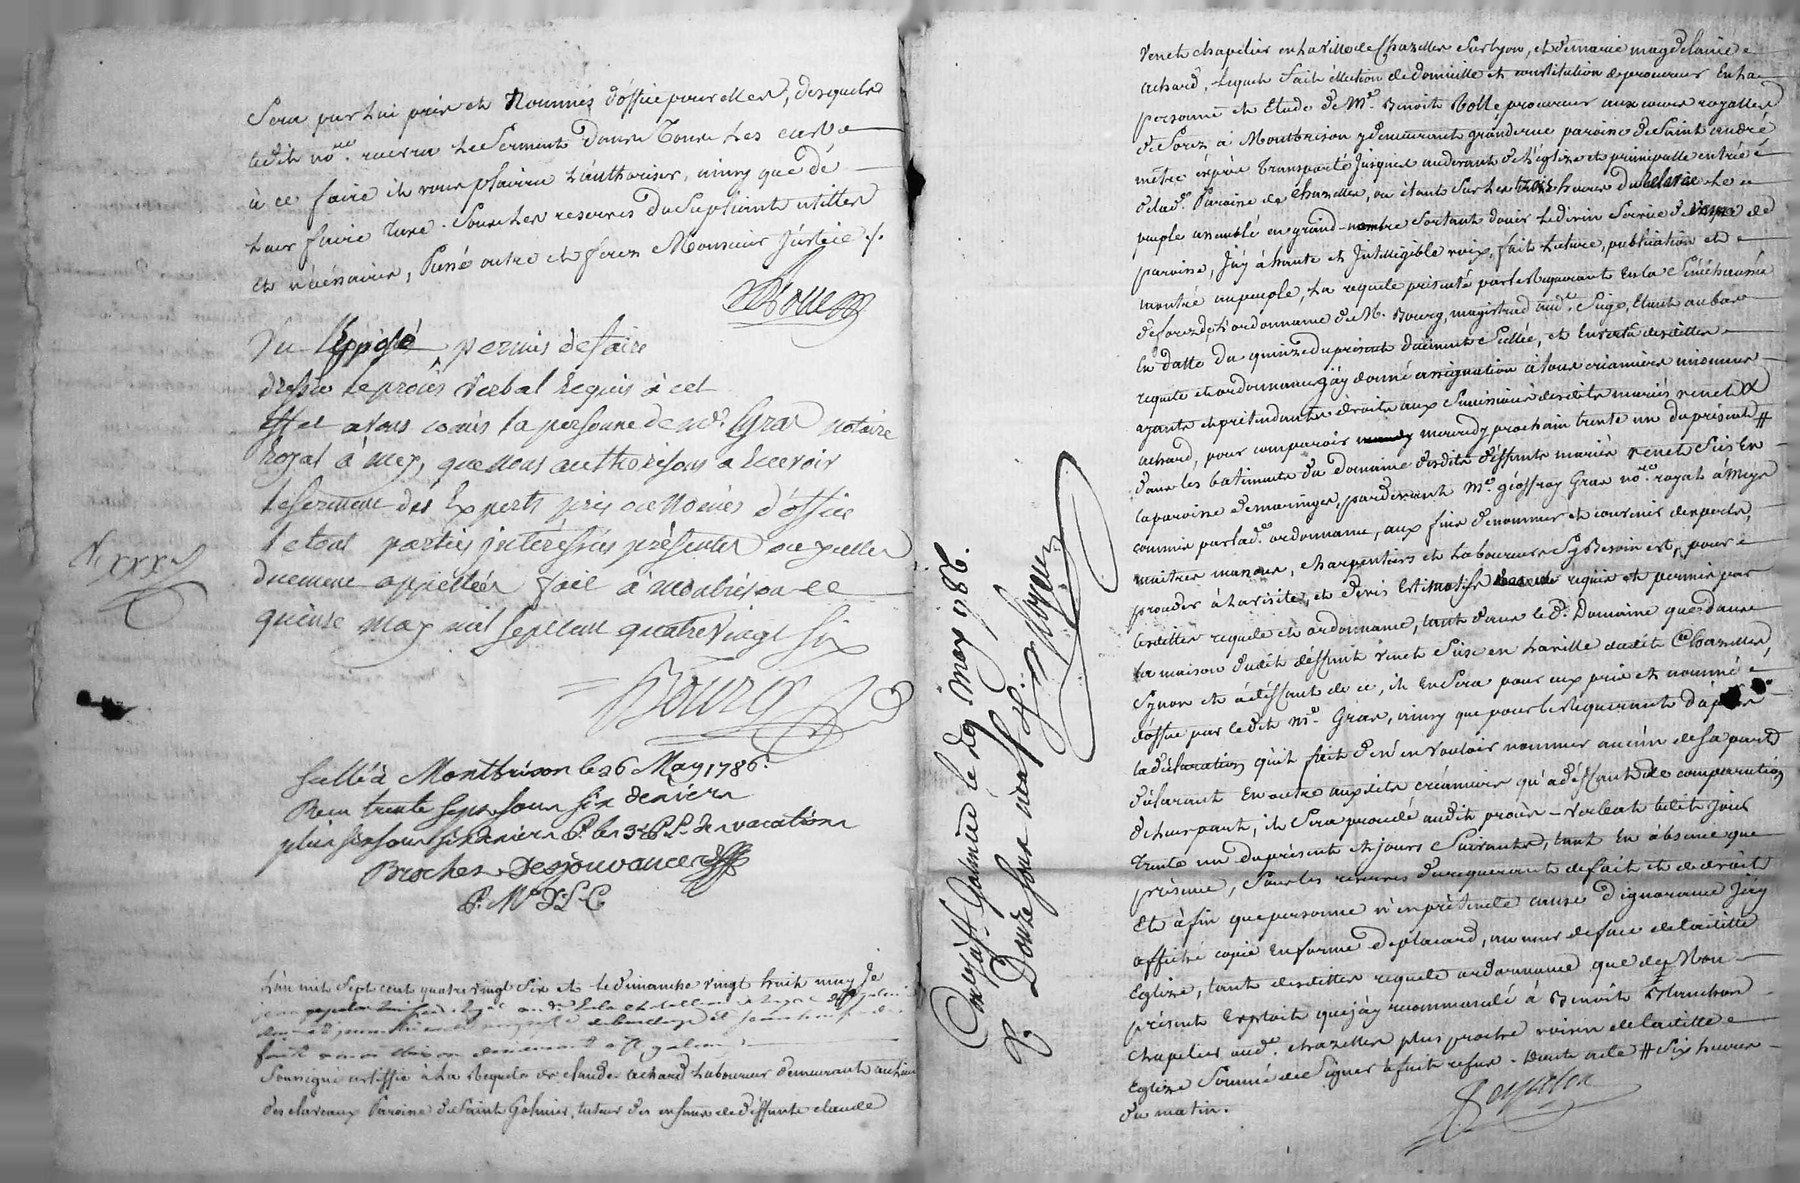 Sera par lui pris et Nommés d'office pour elles, desquels
ledit no.re recevra le Serment dans Tous les cas
à ce faire il vous plaira l'authoriser, ainsy que de
Leur faire Taxe. Sous les reserves du Supliant utilles
et nécésaires, Susé outre et ferez Monsieur Justice ./.
Rolle
Vu l'Exposé, permis de faire
dresser le procès verbal Requis à cet
effet avons comis la personne de me. Gras notaire
Royal à meys, que nous authorisons a Recevoir
le serment des Experts pris ou Només d'office
le tout parties intéréssées présentes ou icelles
duement appellées fait à montbrison ce
quinze may mil sept cent quatre vingt six
Bourg
Scellé à Montbrison le 26 May 1786.
Reçu trente sept sous six deniers
plus sous six deniers P. les 3 s. P. L. de vacation
Desjouvance
P. Mr D.L.C
L'an mil Sept cent quatre vingt Six et le dimanche vingt huit may Je
Soussigné certiffie à La Requete de claude achard Laboureur demeurant au lieu
des claveaux Paroisse de Saint Galmier, tuteur des enfans de déffunts claude
Controllé à St. Galmier le 29 May 1786.
R. Douze sous neuf d.
venet chapelier en la ville de Chazelles Sur lyon, et de marie magdelaine
achard, lequel fait élection de domicille et constitution de procureur En la
personne et Etude de Me. Benoit Rolle procureur aux cours royalles
de forez à Montbrison y demeurant grande rue paroisse de Saint andré
m'étre éxprès Transporté Jusques audevant de L'églize et principalle entrée
de lad. Paroisse de Chazelles, ou étant Sur les trois heures du
peuple assemblé en grand nombre Sortant d'ouir le divin Service de de
paroisse, J'ay à haute et Jntelligible voix, fait Lecture, publication et
montré au peuple, La requete présenté par le Requerant En la Sénéchaussée
de forez, de L'ordonnance de M. Bourg, magistrat aud. Siege, Etant au bas
En datte du quinze du présent duement Scellée, et En vertu desdittes
requete et ordonnance J'ay donné assignation à tous créanciers inconnus
ayants et prétendants droits aux Successions desdits mariés venet &
achard, pour comparoir mercredy prochain trente un du présent #
dans les batiments du domaine desdits déffunts mariés venet Sis En
la paroisse de maringes, pardevant Me. géoffroy Gras no.re royal à Meys
commis par lad. ordonnance, aux fins de nommer et convenir d'experts,
maitres massons, charpentiers et Laboureurs Sy Besoin est, pour
proceder à la visite, et devis Estimatifs requis et permis par
lesdittes requete et ordonnance, tant dans le d. Domaine que dans
la maison dudit déffunt venet Sise en la ville dudit Chazelles,
Synon et à déffaut de ce, il En Sera pour eux pris et nommé
d'office par ledit Me. Gras, ainsy que pour le Requerant d'après
la déclaration qu'il fait de n'en vouloir nommer aucun de Sa part
déclarant En outre auxdits créanciers qu'a déffaut de comparution
de leur part, il Sera procédé audit procès-verbal ledit Jour
Trente un du présent et jours Suivants, tant En absence que
présence, Sous les reserves du requerant de fait et de droit
Et à fin que personne n'en prétende cause d'ignorance J'ay
affiché copie En forme de placard, au mur de face de laditte
Eglize, tant desdittes requete ordonnance que de Mon
présent Exploit que j'ay recommandé à Benoit Blanchon
chapelier aud. chazelles plus proche voisin de laditte
Eglize Sommé de Signer a fait refus. Dont acte # Six heures
du matin.